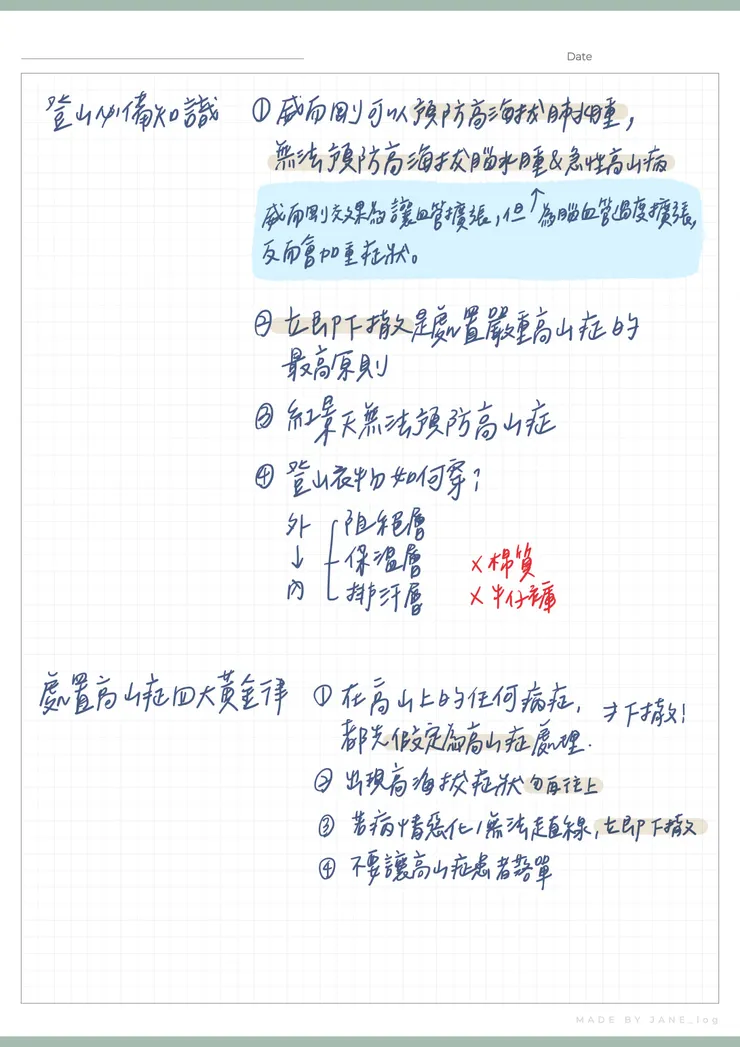 Date
登山必備知識
① 威而剛可以預防高海拔肺水腫,
無法預防高海拔腦水腫&急性高山病
威而剛效果為讓血管擴張,但↑為腦血管過度擴張,
反而會加重症狀。
② 立即下撤是處置嚴重高山症的
最高原則
③ 紅景天無法預防高山症
④ 登山衣物如何穿?
外 阻絕層
↓ 保溫層 ×棉質
內 排汗層 ×牛仔褲
處置高山症四大黃金律
① 在高山上的任何病症, ⇒下撤!
都先假定為高山症處理.
② 出現高海拔症狀勿再往上
③ 若病情惡化/無法走直線,立即下撤
④ 不要讓高山症患者落單
MADE BY JANE_log